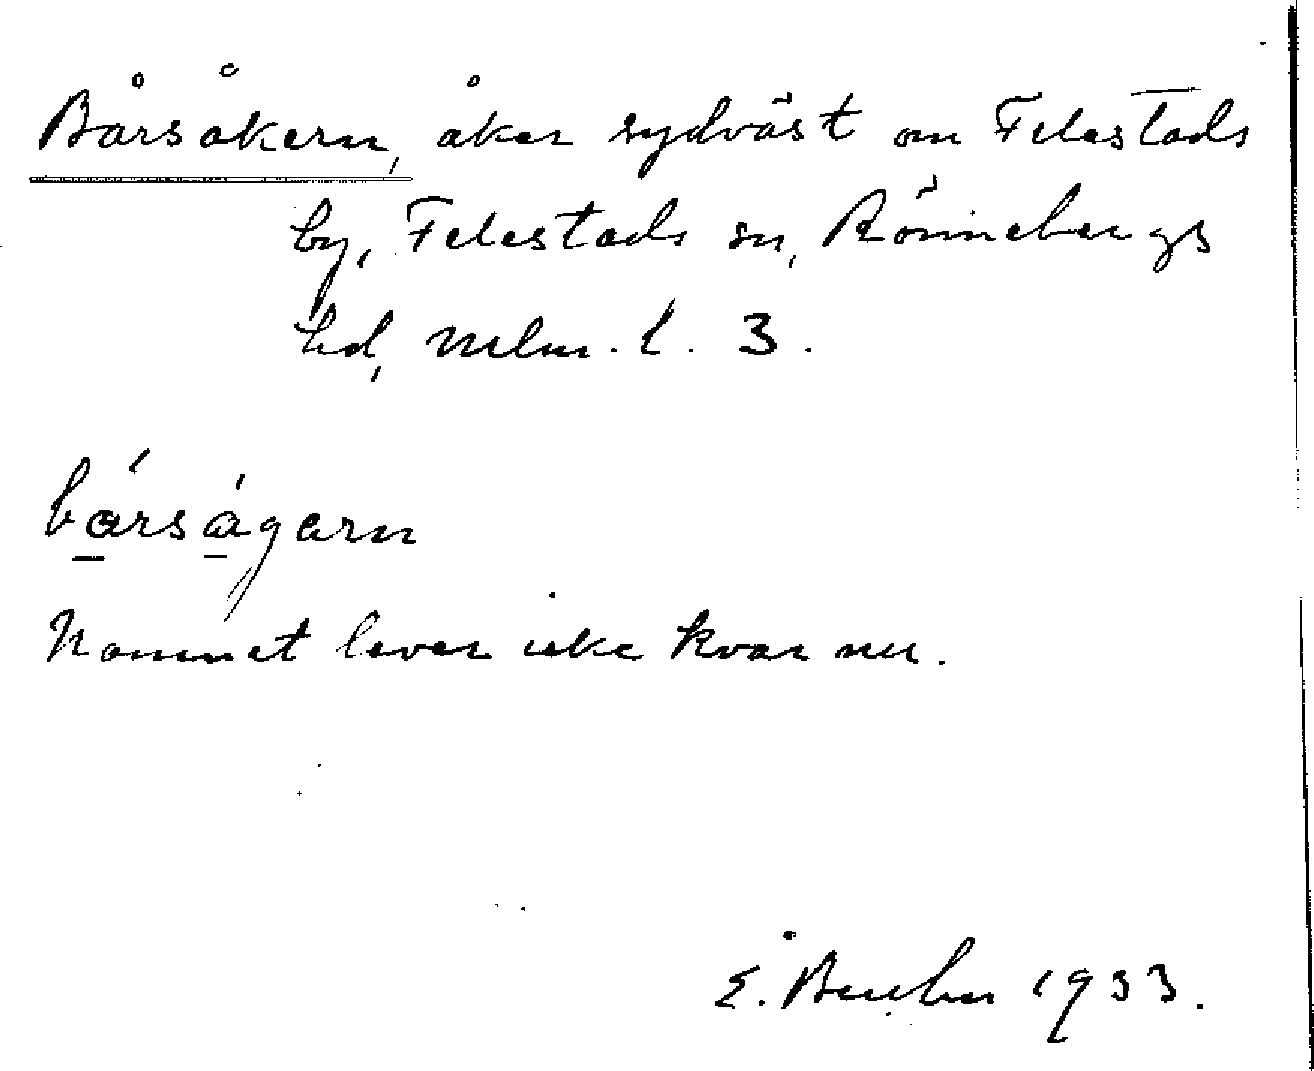 Bårsåkern, åker sydväst om Felestads
by, Felestads sn, Rönnebergs
hd, Mlm. l. 3.
bárságarn
Namnet lever icke kvar nu.
E. 1933.